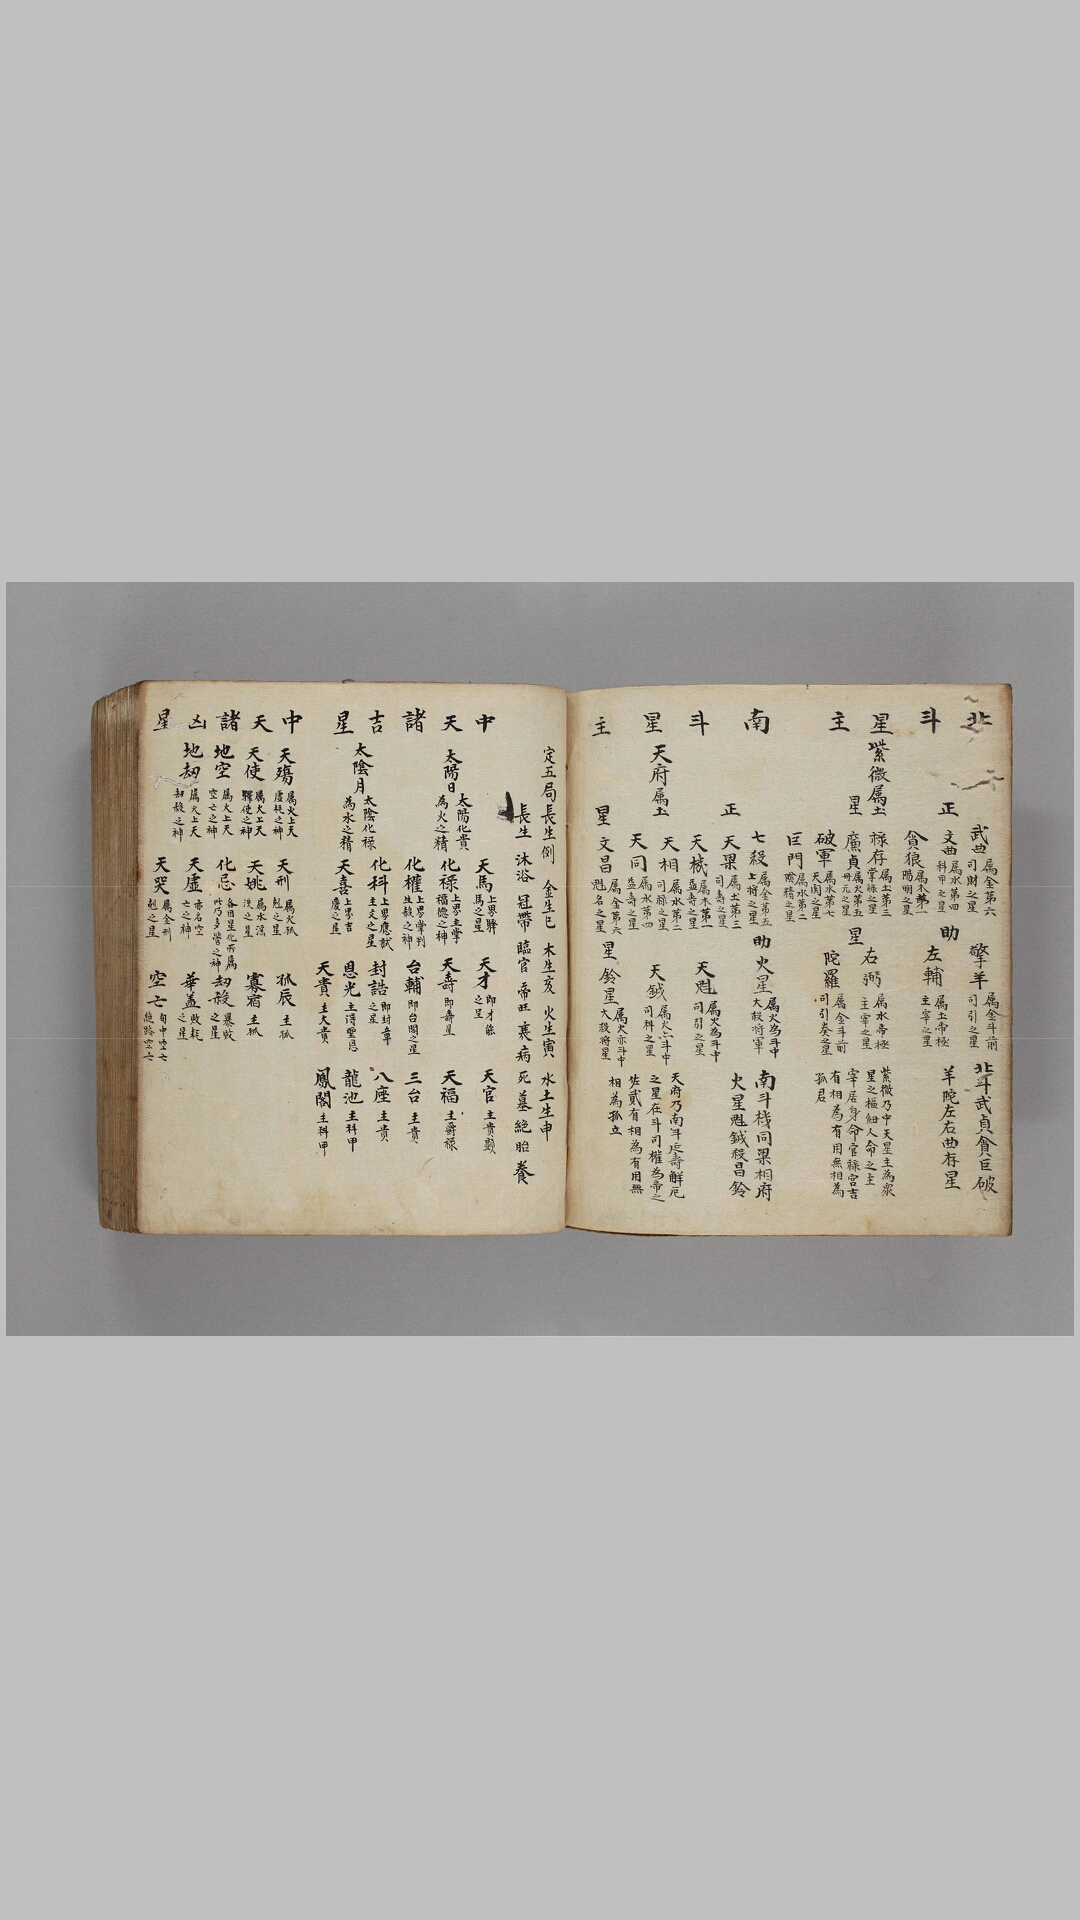 北斗星主
紫微属土
正星
武曲 属金第六 司財之星
文曲 属水第四 科甲之星
貪狼 属木第一 陽明之星
禄存 属土第三 掌禄之星
廉貞 属火第五 丹元之星
破軍 属水第七 天関之星
巨門 属水第二 陰精之星
助星
擎羊 属金斗前 司引之星
左輔 属土帝極 主宰之星
右弼 属水帝極 主宰之星
陀羅 属金斗前 司引奏之星
北斗武貞貪巨破
羊陀左右曲存星
紫微乃中天星主為衆
星之樞紐人命之主
宰居身命官禄宮吉
有相為有用無相為
孤君
南斗星主
天府属土
正星
七殺 属金第五 上將之星
天梁 属土第三 司壽之星
天機 属木第一 益壽之星
天相 属水第二 司禄之星
天同 属水第四 益壽之星
文昌 属金第六 魁名之星
助星
火星 属火為斗中 大殺将軍
天魁 属火為斗中 司引之星
天鉞 属火六斗中 司科之星
鈴星 属火亦斗中 大殺將星
南斗機同梁相府
火星魁鉞殺昌鈴
天府乃南斗延壽解厄
之星在斗司權為帝之
佐貳有相為有用無
相為孤立
定五局長生例 金生巳 木生亥 火生寅 水土生申
長生 沐浴 冠帶 臨官 帝旺 衰 病 死 墓 絶 胎 養
中天諸吉星
太陽日 太陽化貴 為火之精
太陰月 太陰化禄 為水之精
天馬 上界驛馬之星
化禄 上界主掌福德之神
化權 上界掌判生殺之神
化科 上界應試主文之星
天喜 上界吉慶之星
天才 即才能之星
天壽 即壽星
台輔 即台閣之星
封誥 即封章之星
恩光 主得聖恩
天貴 主大貴
天官 主貴顯
天福 主爵禄
三台 主貴
八座 主貴
龍池 主科甲
鳳閣 主科甲
中天諸凶星
天殤 属火上天 虚耗之神
天使 属火上天 驛使之神
地空 属火上天 空亡之神
地刼 属火上天 刼殺之神
天刑 属火孤尅之星
天姚 属水
化忌 各因星化所属
天虛 亦名空亡之神
天哭 属金刑尅之星
孤辰 主孤
寡宿 主孤
刼殺 暴敗之星
華盖 敗耗之星
空亡 旬中空亡 截路空亡